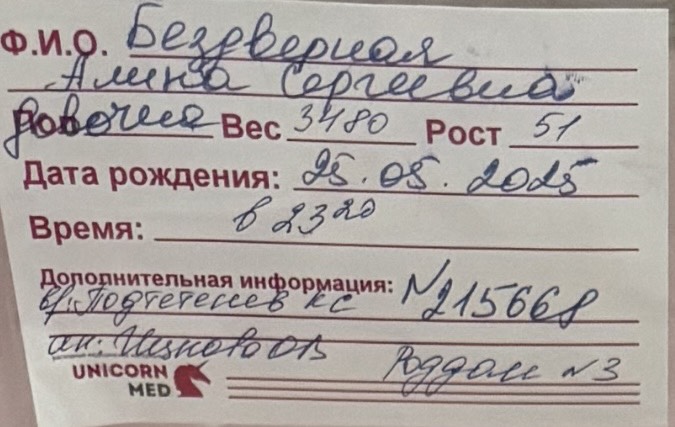 Ф.И.О. Бездверная
Алина Сергеевна
девочка Вес 3480 Рост 51
Дата рождения: 25.05.2025
Время: в 23 20
Дополнительная информация: N 215668
вр. Подтетенев КС
ак. ОВ
Роддом N3
UNICORN
MED